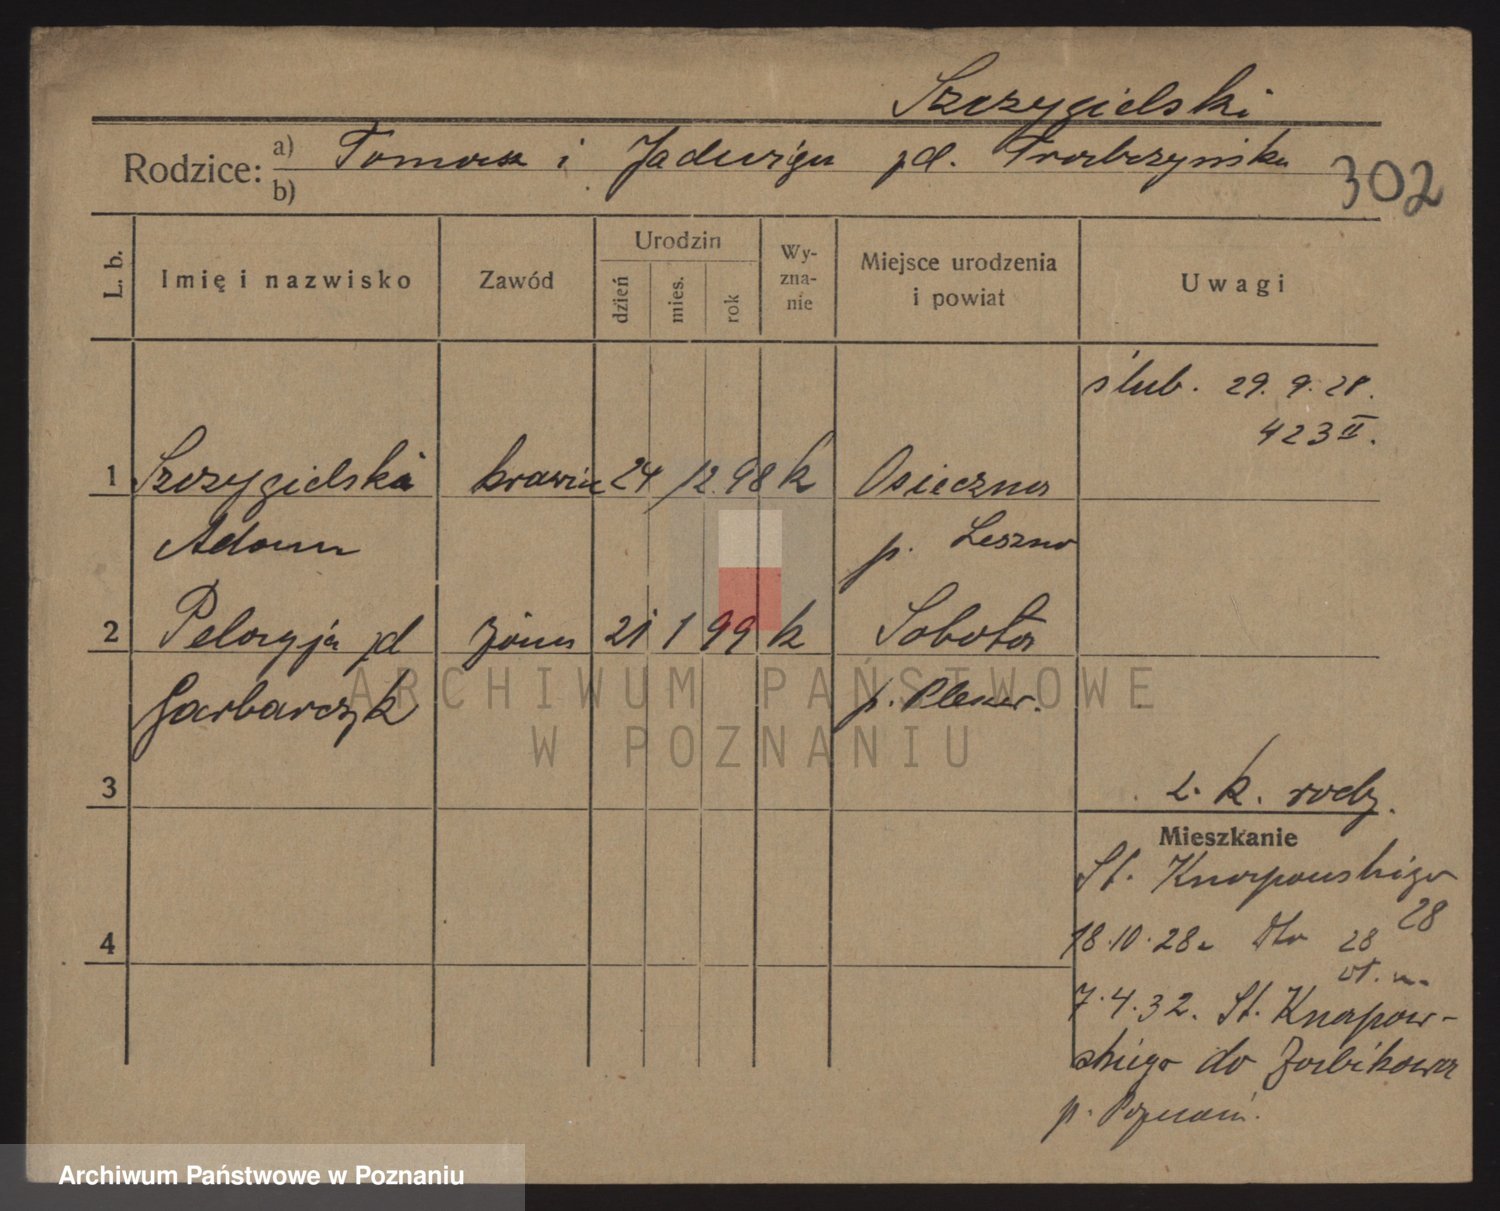 Szczygielski
Rodzice: a) Tomasz i Jadwiga zd. Trąbczyńska
b)
302
L. b. Imię i nazwisko Zawód Urodzin dzień mies. rok Wyznanie Miejsce urodzenia i powiat Uwagi
ślub. 29. 9. 28.
423 II.
1 Szczygielski krawiec 24 12 98 k Osieczna
Adam p. Leszno
2 Pelagja zd żona 21 1 99 k Sobótka
Garbarczyk p. Plesz.
3 z. k. rodz.
Mieszkanie
St. Knapowskiego
28
4 18.10.28 dto 28
7.4.32. St. Knapow-
skiego do Żabikowa
p. Poznań.
ARCHIWUM PAŃSTWOWE
W POZNANIU
Archiwum Państwowe w Poznaniu